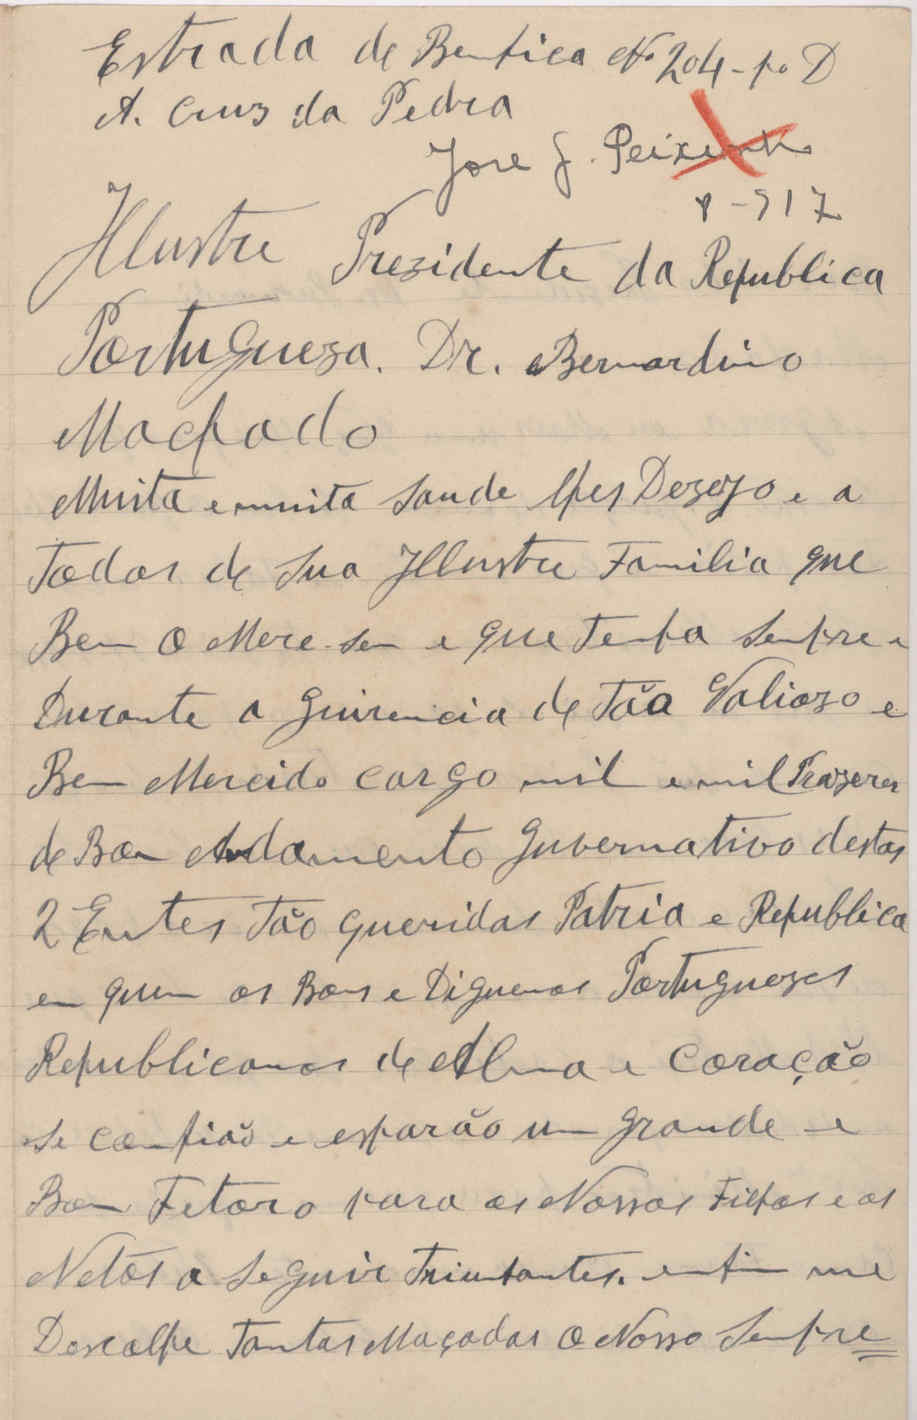 Estrada de Bemfica Nº 204-po D
A. Cruz da Pedra
Jose J. Peixinho
8-917
Illustre Prezidente da Republica
Portugueza. Dr. Bernardino
Machado
Muita e muita Saude lhes Dezejo e a
Todos de Sua Illustre Familia que
Bem o Mere-sem e que Tenha Sempre e
Durante a Guirencia de Tão Valiozo e
Bem Mercido cargo mil e mil Prazeres
de Bom Andamento Guvernativo destas
2 Entes Tão queridas Patria e Republica
em quem os Bons e Diguenos Portuguezes
Republicanos de Alma e Coração
Se confião e esparão um grande e
Bom Fetoro para os Nossos Filhos e os
Netos a Seguir Triunfantes. enfim me
Desculpe Tantas Maçadas O Nosso Sempre